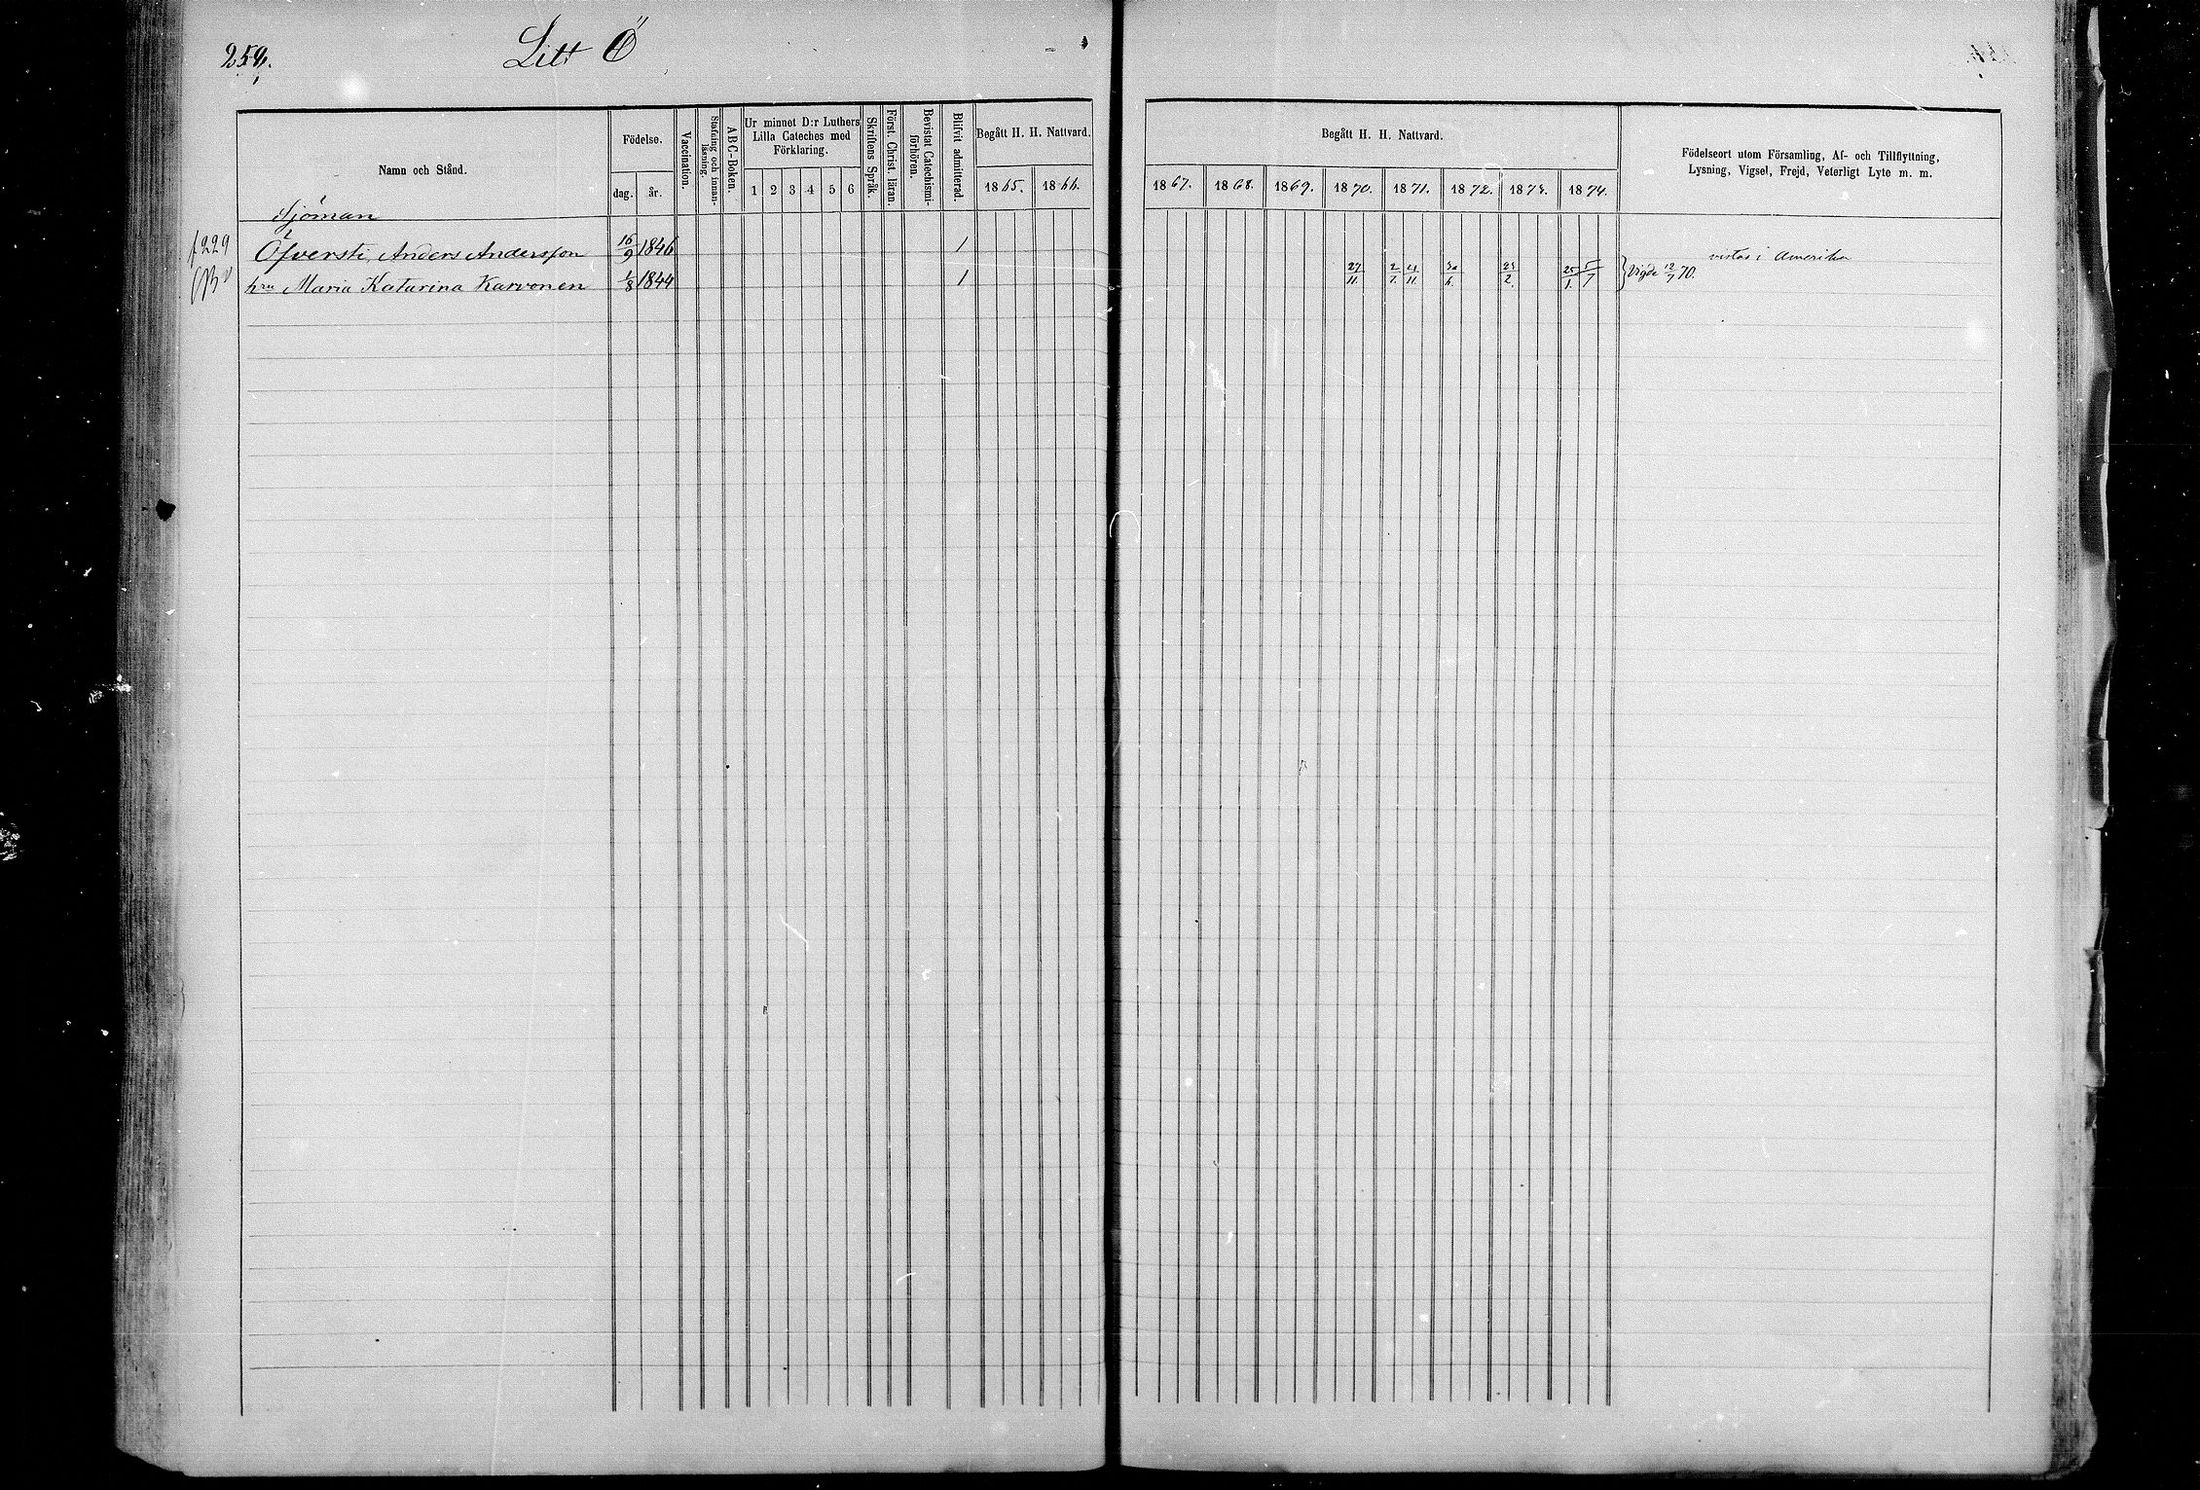 259.
Litt Ö
Namn och Stånd.
Födelse.
dag. år.
Vaccination.
Stafning och innanläsning.
ABC-Boken.
Ur minnet D:r Luthers
Lilla Cateches med
Förklaring.
1 2 3 4 5 6
Skriftens Språk.
Först. Christ. läran.
Bevistat Catechismiförhören.
Blifvit admitterad.
Begått H. H. Nattvard.
1865. 1866.
Begått H. H. Nattvard.
1867. 1868. 1869. 1870. 1871. 1872. 1873. 1874.
Födelseort utom Församling, Af- och Tillflyttning,
Lysning, Vigsel, Frejd, Veterligt Lyte m. m.
Sjöman
f 229 Öfversti, Anders Andersson 16/9 1846 1 vistas i Amerika
hru Maria Katarina Karvonen 1/8 1844 1 27/11. 21/11. 30/6. 23/2. 25/1. 5/7 } Vigde 12/7 70.